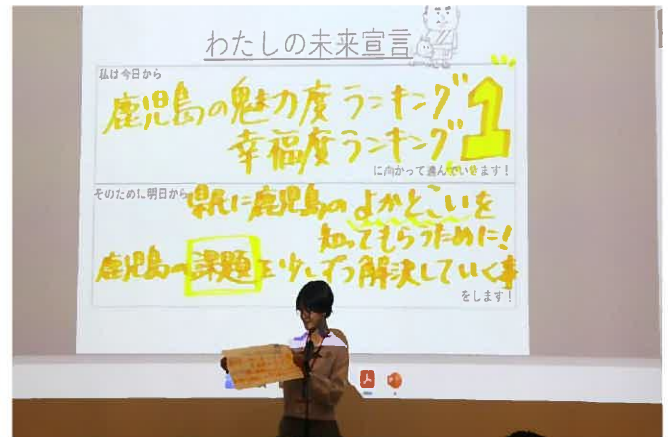 わたしの未来宣言
私は今日から
鹿児島の魅力度ランキング
幸福度ランキング 1
に向かって進んでいきます!
そのために明日から
県民に鹿児島のよかとこいを
知ってもらうために!
鹿児島の課題を少しずつ解決していく事
をします!